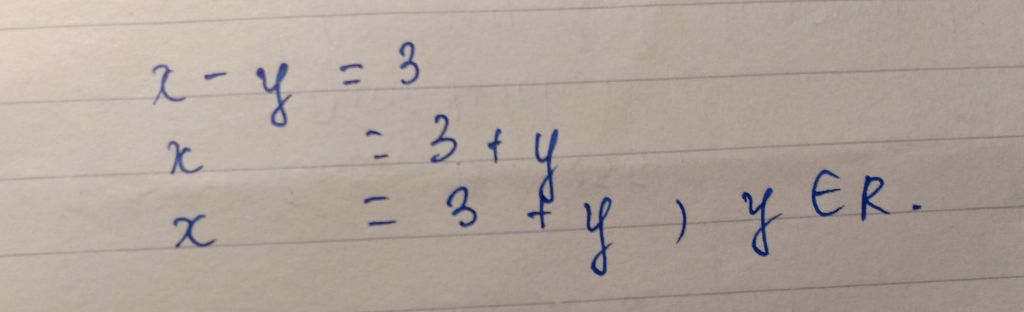 x - y = 3
x = 3 + y
x = 3 + y , y ∈ R.